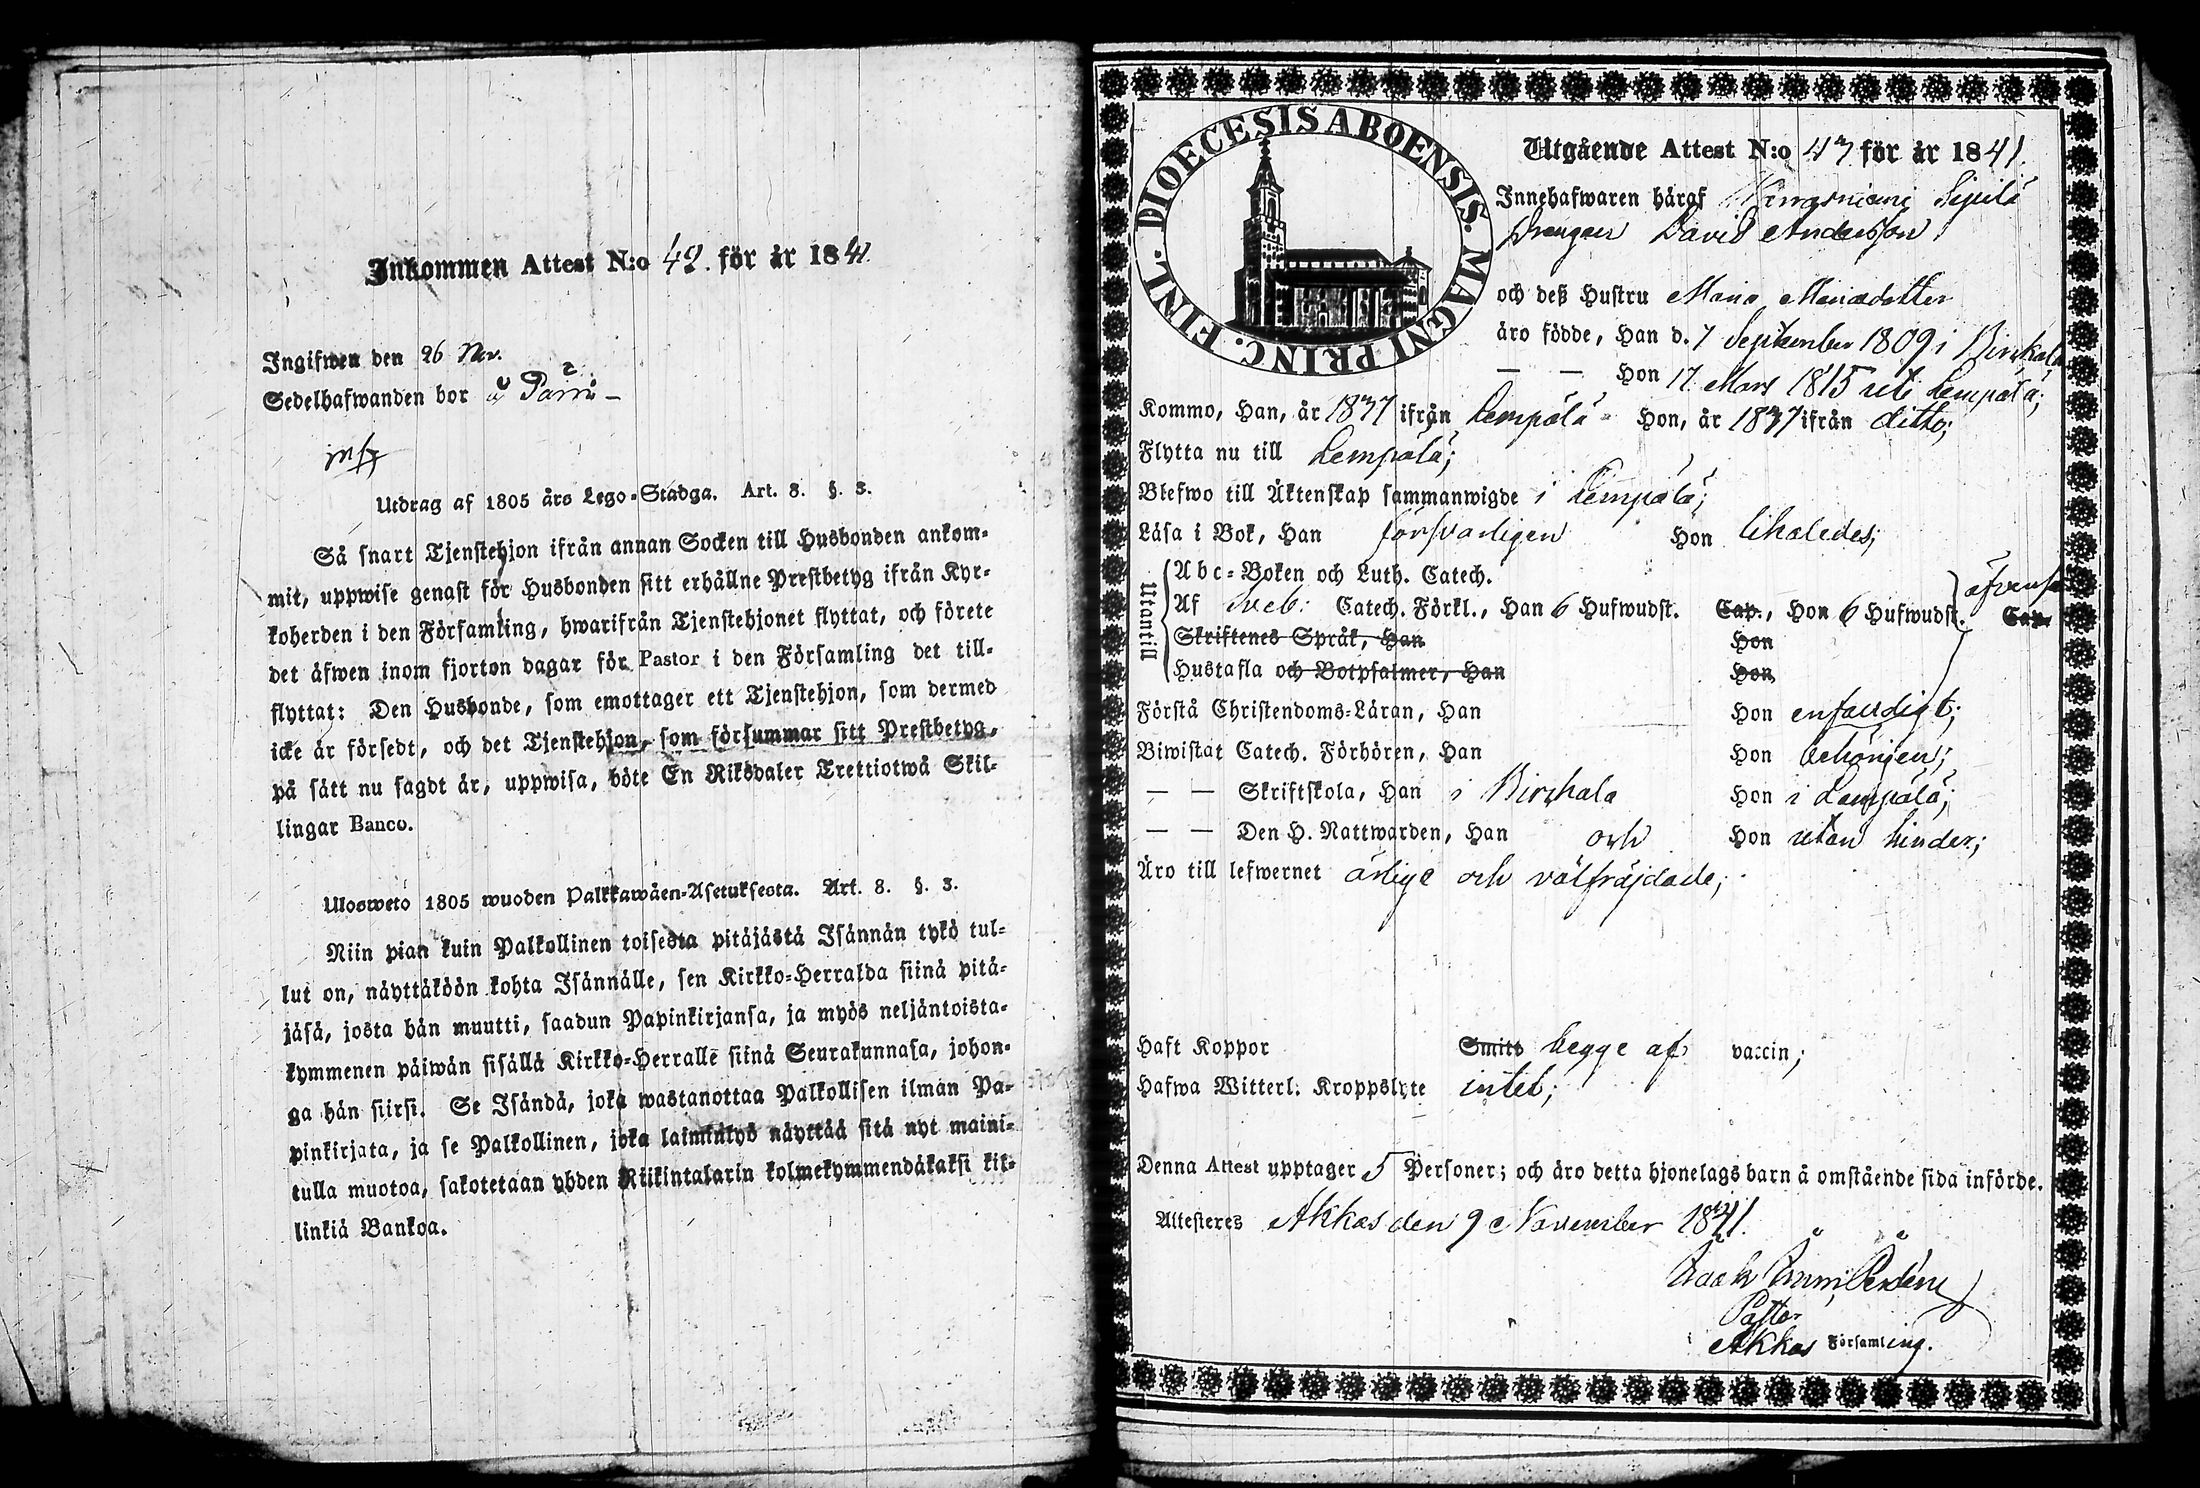 Inkommen Attest N:o 49. för år 1841.
Ingifwen den 26 Nov.
Sedelhafwanden bor å
Utdrag af 1805 års Lego-Stadga. Art. 8. §. 3.
Så snart Tjenstehjon ifrån annan Socken till Husbonden ankom-
mit, uppwise genast för Husbonden sitt erhållne Prestbetyg ifrån Kyr-
koherden i den Församling, hwarifrån Tjenstehjonet flyttat, och förete
det äfwen inom fjorton dagar för Pastor i den Församling det till-
flyttat: Den Husbonde, som emottager ett Tjenstehjon, som dermed
icke är försedt, och det Tjenstehjon, som försummar sitt Prestbetyg,
på sätt nu sagdt är, uppwisa, böte En Riksdaler Trettiotwå Skil-
lingar Banco.
Ulosweto 1805 wuoden Palkkawäen-Asetuksesta. Art. 8. §. 3.
Niin pian kuin Palkollinen toisesta pitäjästä Isännän tykö tul-
lut on, näyttäköön kohta Isännälle, sen Kirkko-Herralda siinä pitä-
jäsä, josta hän muutti, saadun Papinkirjansa, ja myös neljäntoista-
kymmenen päiwän sisällä Kirkko-Herralle siinä Seurakunnasa, johon-
ga hän siirsi. Se Isändä, joka wastanottaa Palkollisen ilman Pa-
pinkirjata, ja se Palkollinen, joka laiminlyö näyttää sitä nyt maini-
tulla muotoa, sakotetaan yhden Riikintalarin kolmekymmendäkaksi kil-
linkiä Bankoa.
DIOECESIS ABOENSIS. MAGNI PRINC. FINL.
Utgående Attest N:o 47 för år 1841.
Innehafwaren häraf Sipilä
Drengen David Andersson
och deß Hustru Maria Mariædotter
äro födde, Han d. 7 September 1809 i Birkala
— — Hon 17 Mars 1815 uti Lempälä;
Kommo, Han, år 1837 ifrån Lempälä Hon, år 1837 ifrån ditto;
Flytta nu till Lempälä;
Blefwo till Äktenskap sammanwigde i Lempälä;
Läsa i Bok, Han försvarligen Hon likaledes;
Utantill
Abc-Boken och Luth. Catech.
Af Sveb: Catech. Förkl., Han 6 Hufwudst. Cap., Hon 6 Hufwudst. Cap.
Skriftenes Språk, Han Hon
Hustafla och Botpsalmer, Han Hon
Förstå Christendoms-Läran, Han Hon enfaldigt;
Biwistat Catech. Förhören, Han Hon behörigen;
— — Skriftskola, Han i Birkala Hon i Lempälä;
— — Den H. Nattwarden, Han och Hon utan hinder;
Äro till lefwernet ärlige och välfräjdade;
Haft Koppor Smitt begge af vaccin;
Hafwa Witterl. Kroppslyte intet;
Denna Attest upptager 5 Personer; och äro detta hjonelags barn å omstående sida införde.
Attesteres Akkas den 9 November 1841.
Pastor
i Akkas Församling.